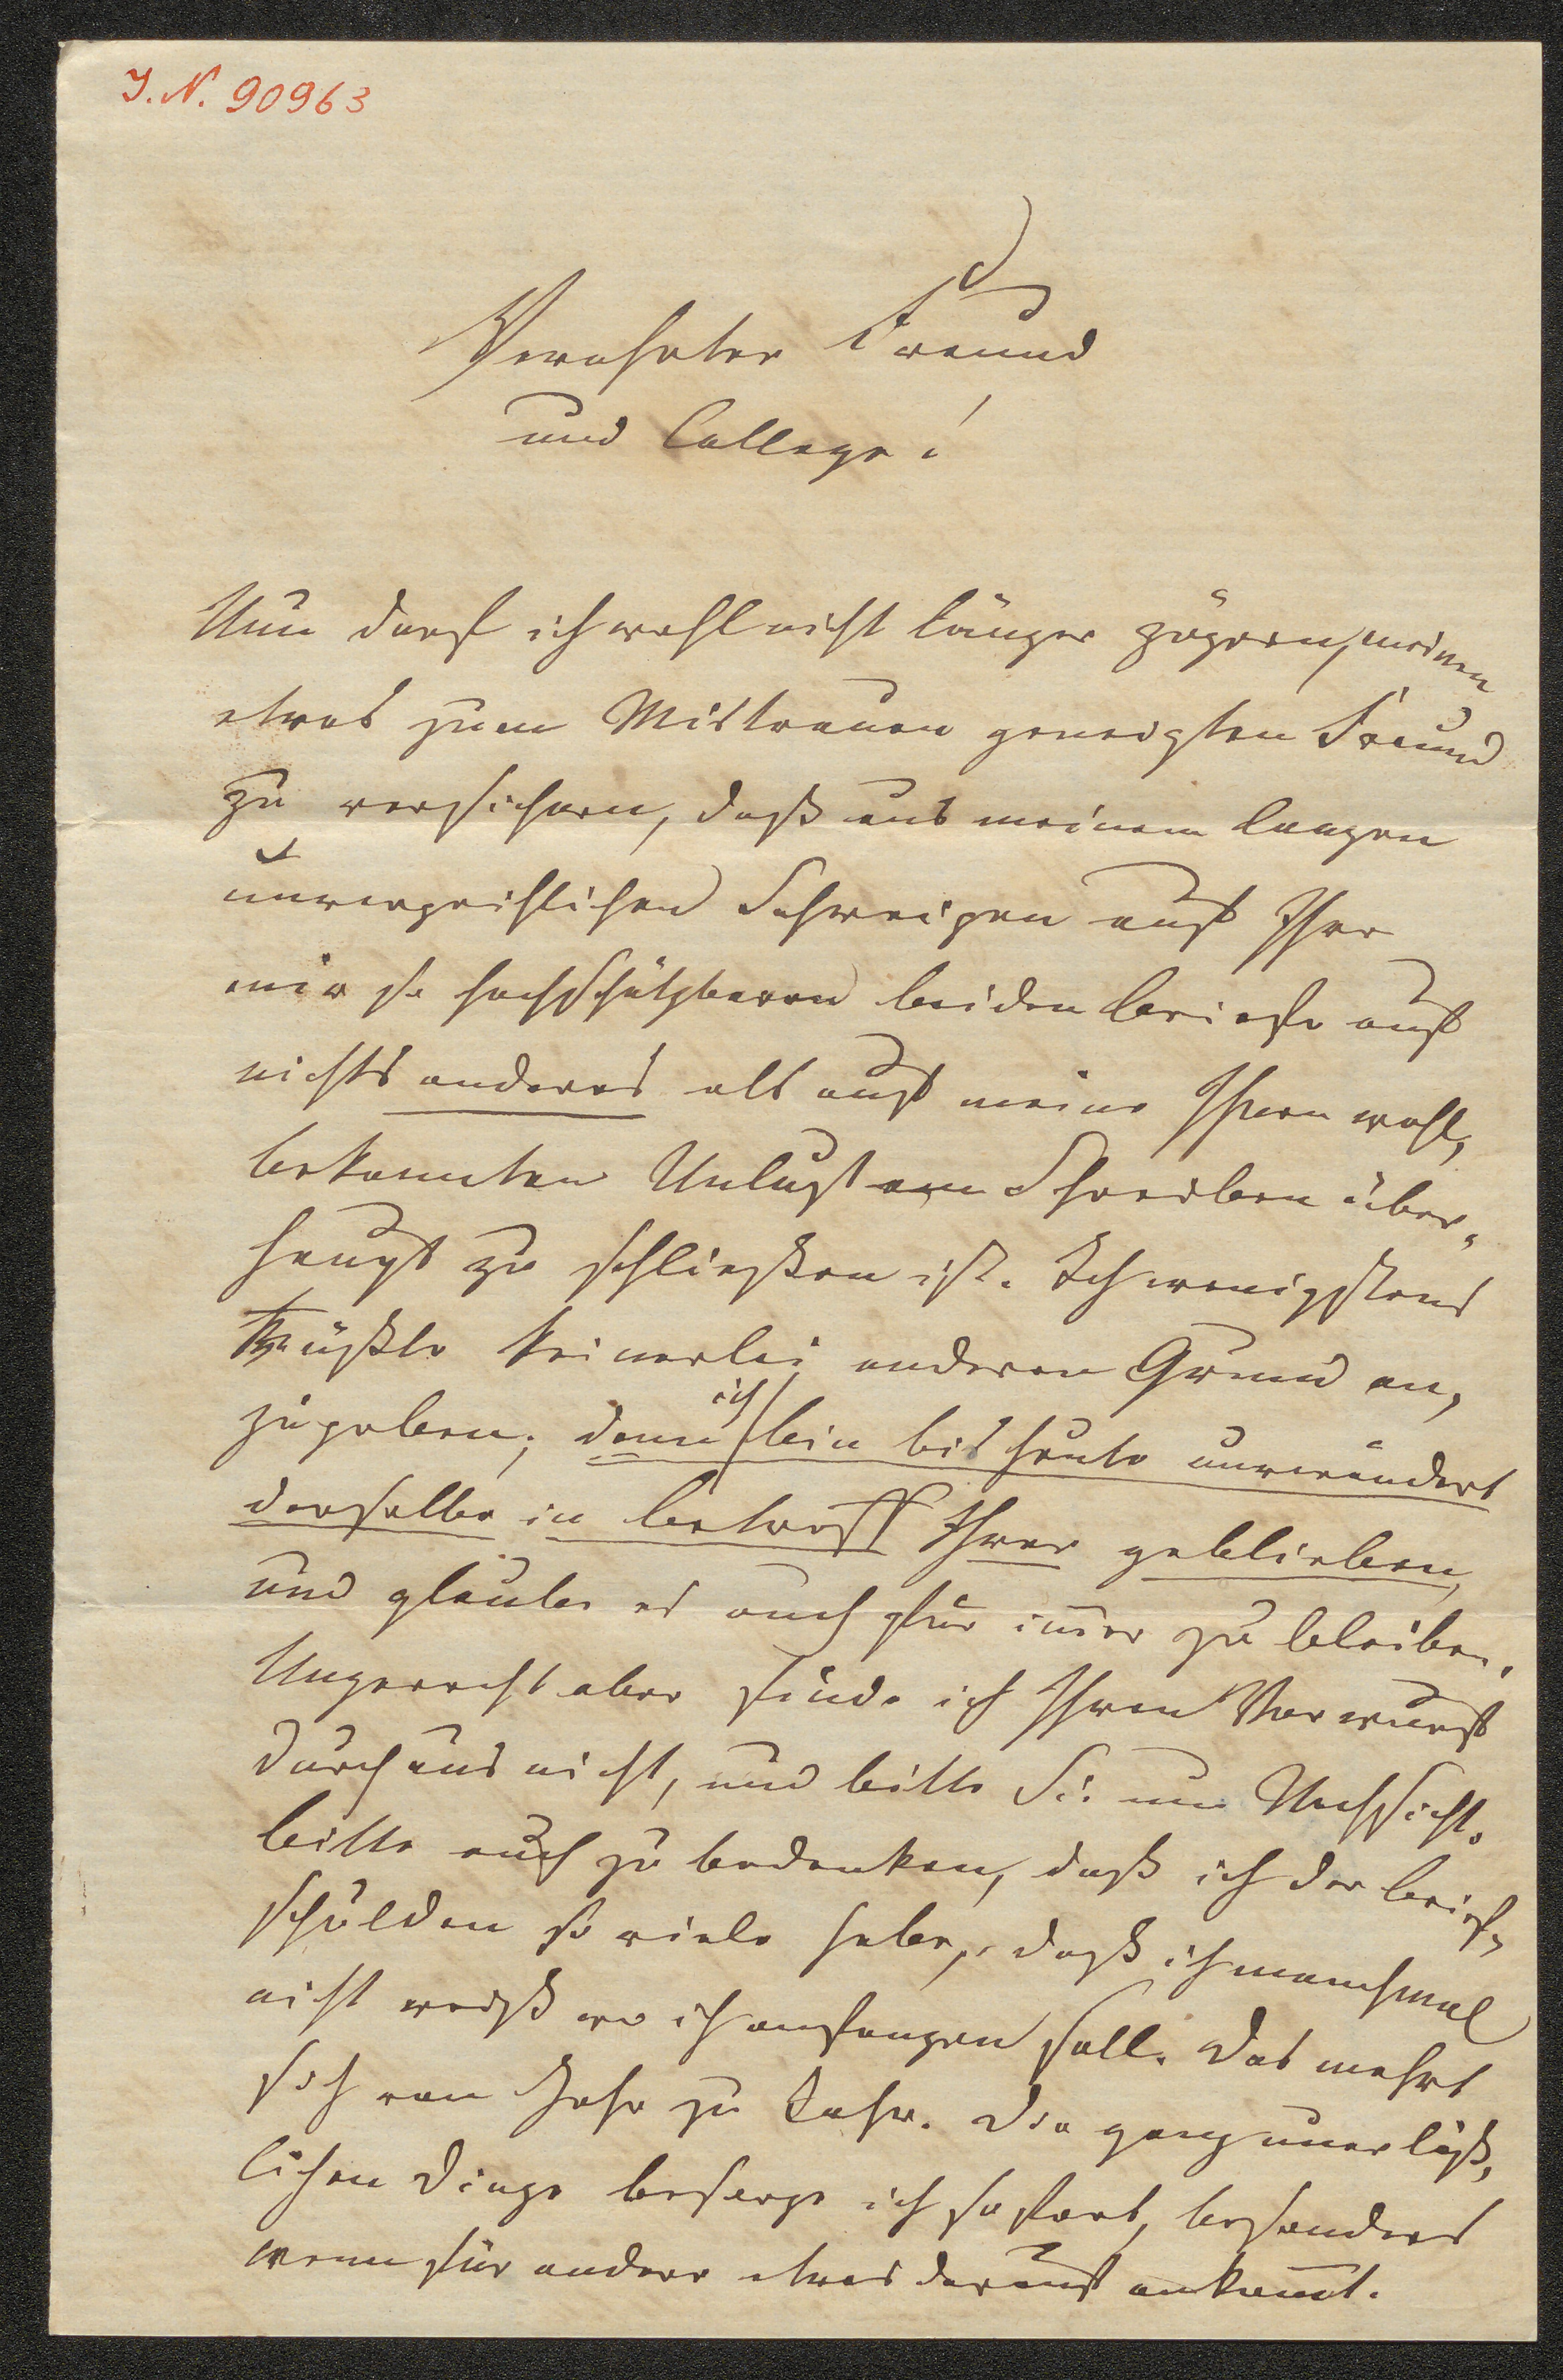 I. N. 90963
Verehrter Freund
und College!
Nun darf ich wohl nicht länger zögern, meinen
etwas zum Mistrauen geneigten Freund
zu versichern, daß aus meinem langen
unverzeihlichen Schweigen auf Ihre
mir so hochschätzbaren beiden Briefe auf
nichts anderes als auf meine Ihnen wohl,
bekannten Unlust am Schreiben über-
haupt zu schließen ist. Ich wenigstens
wüßte keinerlei anderen Grund an,
zugeben; denn ich bin bis heute unverändert
derselbe in betreff Ihrer geblieben,
und glaube es auch für im̄er zu bleiben.
Ungerecht aber finde ich Ihren Vorwurf
durchaus nicht, und bitte Sie um Nachsicht.
bitte auch zu bedenken, daß ich der Brief-
schulden so viele habe, daß ich manchmal
nicht weiß wo ich anfangen soll. Das mehrt
sich von Jahr zu Jahr. Die ganz unerläß,
lichen Dinge besorge ich sofort, besonders
wenn für andere etwas darauf ankom̄t.